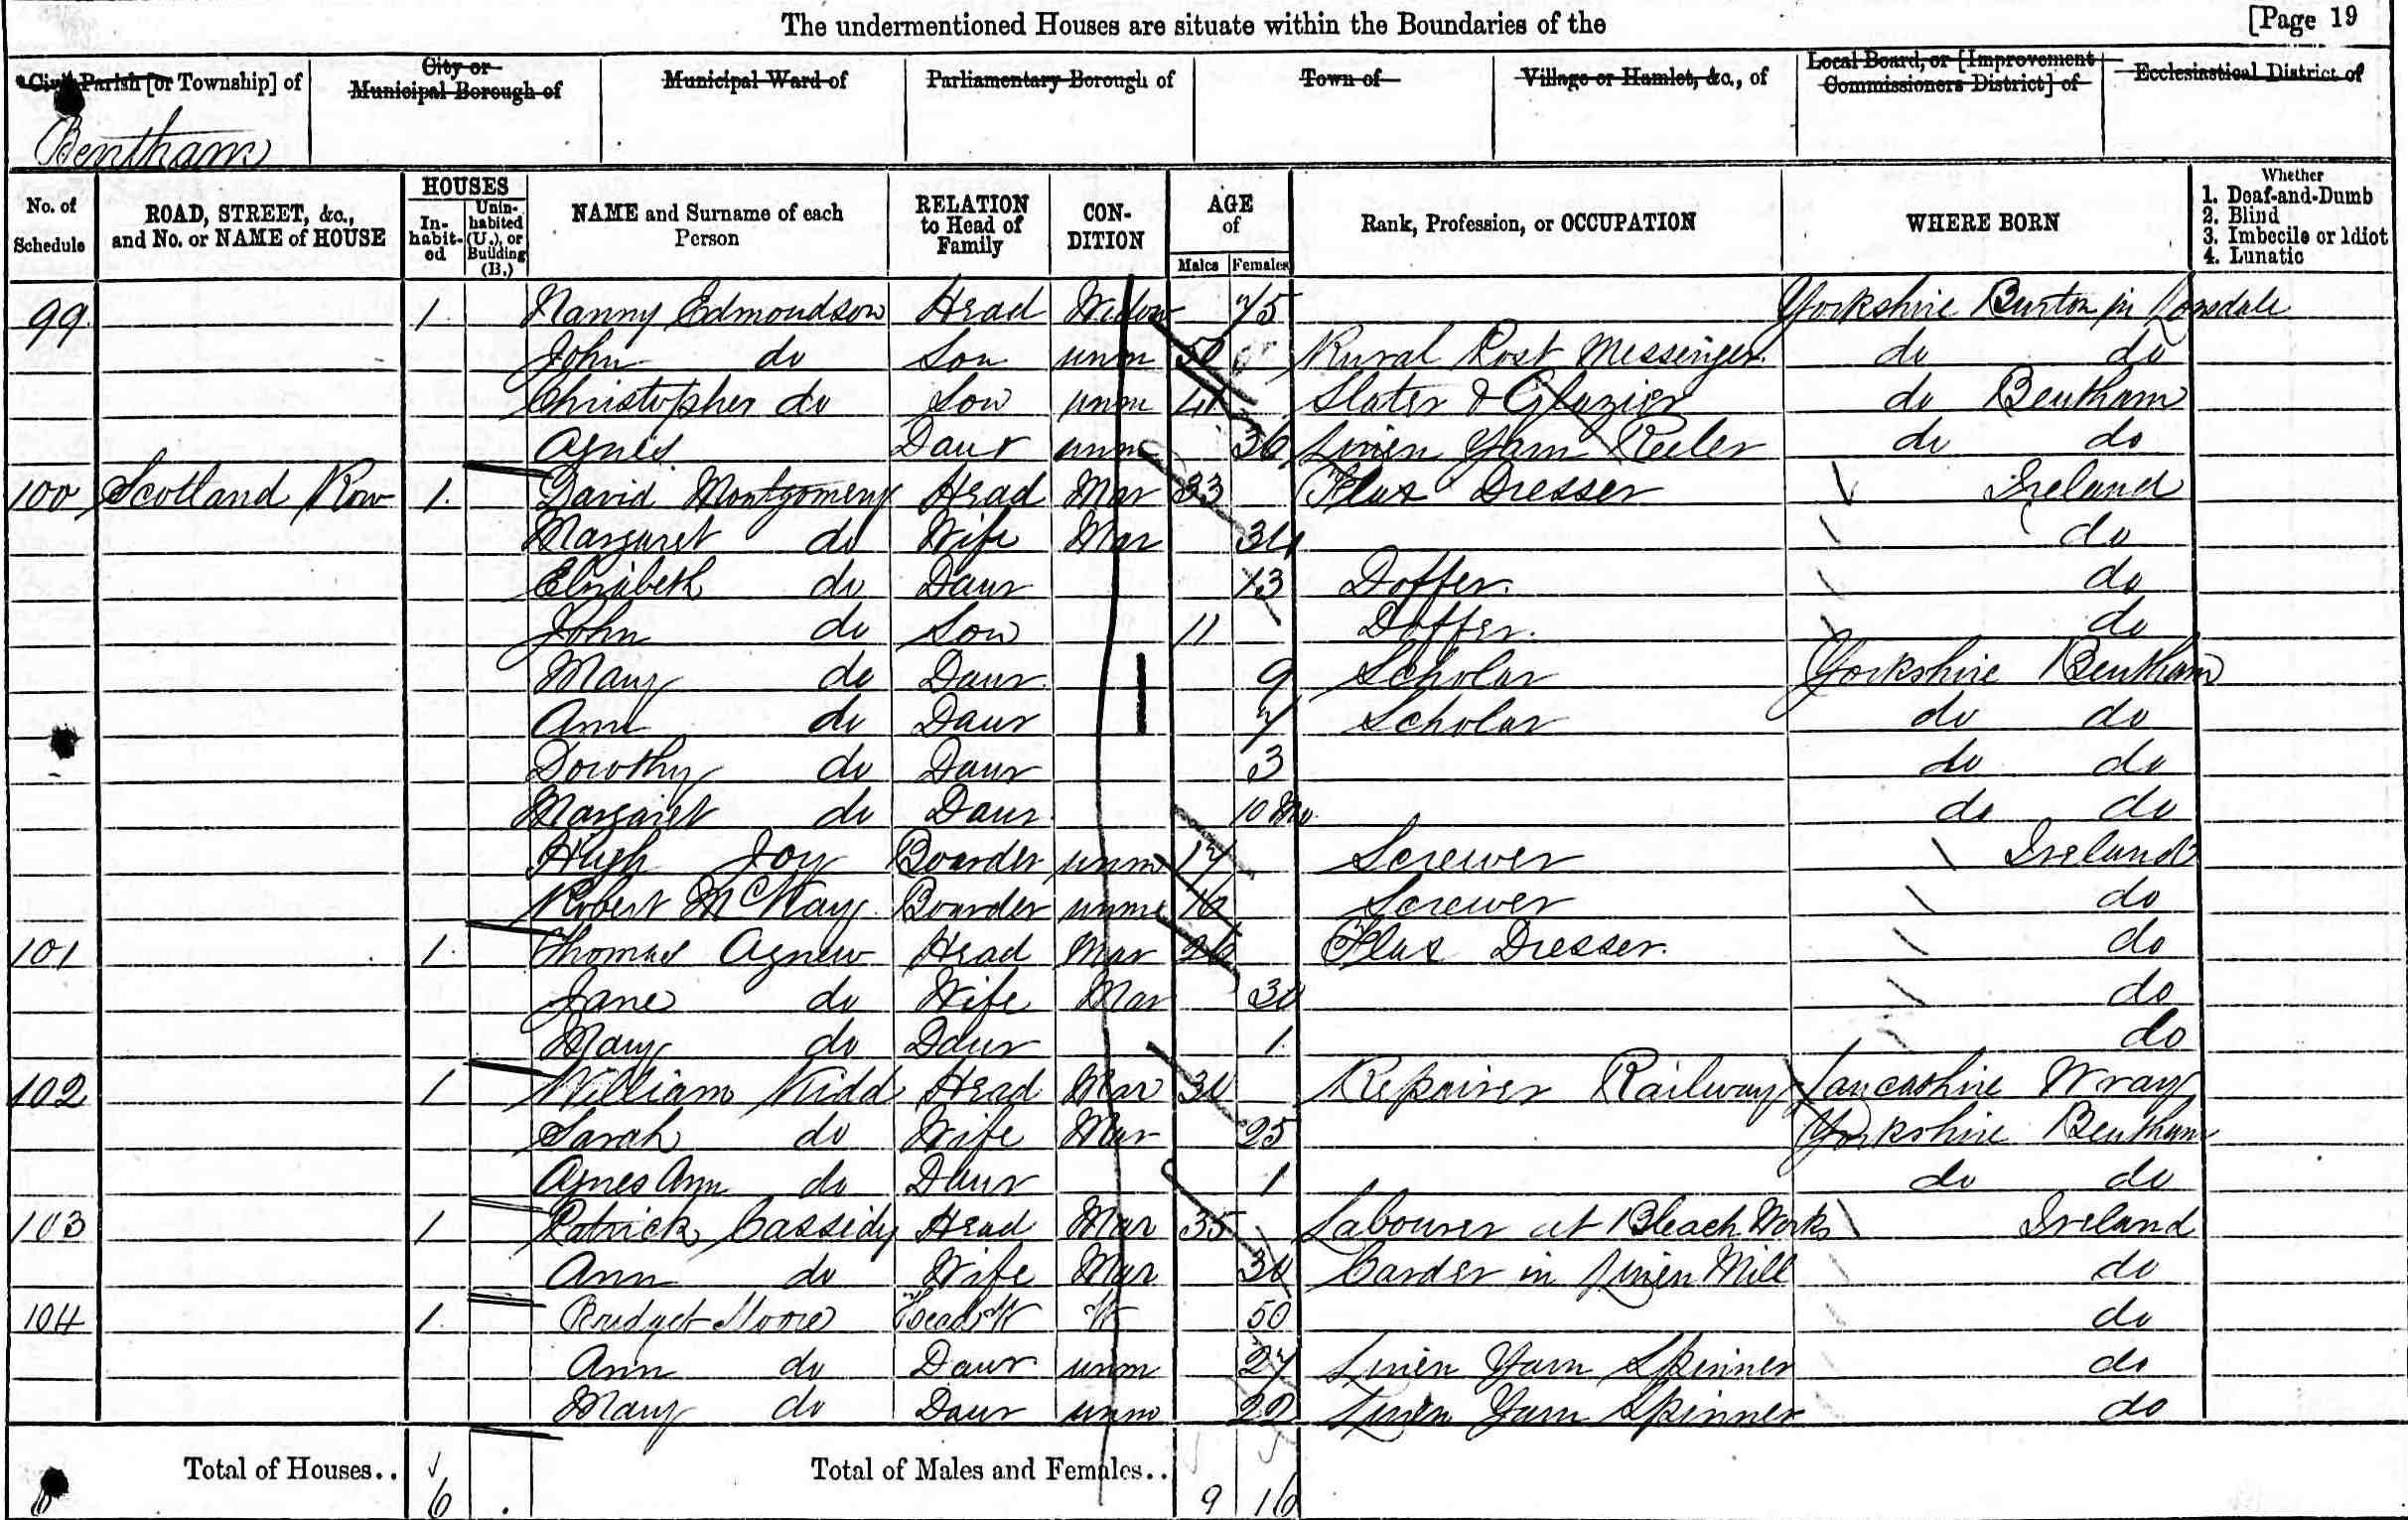 The undermentioned Houses are situate within the Boundaries of the [Page 19
Civil Parish [or Township] of City or Municipal Borough of Municipal Ward of Parliamentary Borough of Town of Village or Hamlet, &c., of Local Board, or [Improvement Commissioners District] of Ecclesiastical District of
Bentham
No. of Schedule ROAD, STREET, &c., and No. or NAME of HOUSE HOUSES Inhabited Uninhabited (U.), or Building (B.) NAME and Surname of each Person RELATION to Head of Family CONDITION AGE of Males Females Rank, Profession, or OCCUPATION WHERE BORN Whether 1. Deaf-and-Dumb 2. Blind 3. Imbecile or Idiot 4. Lunatic
99 1 Nanny Edmondson Head Widow 75 Yorkshire Burton in Lonsdale
John do Son unm Rural Post Messenger do do
Christopher do Son unm Slater & Glazier do Bentham
Agnes Daur unm 36 Linen Yarn Reeler do do
100 Scotland Row 1 David Montgomery Head Mar 33 Flax Dresser Ireland
Margaret do Wife Mar 34 do
Elizabeth do Daur 13 Doffer do
John do Son 11 Doffer do
Mary do Daur 9 Scholar Yorkshire Bentham
Ann do Daur 7 Scholar do do
Dorothy do Daur 3 do do
Margaret do Daur 10 Mo do do
Hugh Joy Boarder unm 17 Screwer Ireland
Robert McKay Boarder unm Screwer do
101 1 Thomas Agnew Head Mar 26 Flax Dresser do
Jane do Wife Mar 30 do
Mary do Daur 1 do
102 1 William Kidd Head Mar 30 Repairer Railway Lancashire Wray
Sarah do Wife Mar 25 Yorkshire Bentham
Agnes Ann do Daur 1 do do
103 1 Patrick Cassidy Head Mar 35 Labourer at Bleach Works Ireland
Ann do Wife Mar 30 Carder in Linen Mill do
104 1 Bridget Moore Head W W 50 do
Ann do Daur unm 27 Linen Yarn Spinner do
Mary do Daur unm 22 Linen Yarn Spinner do
Total of Houses.. 6 Total of Males and Females.. 9 16